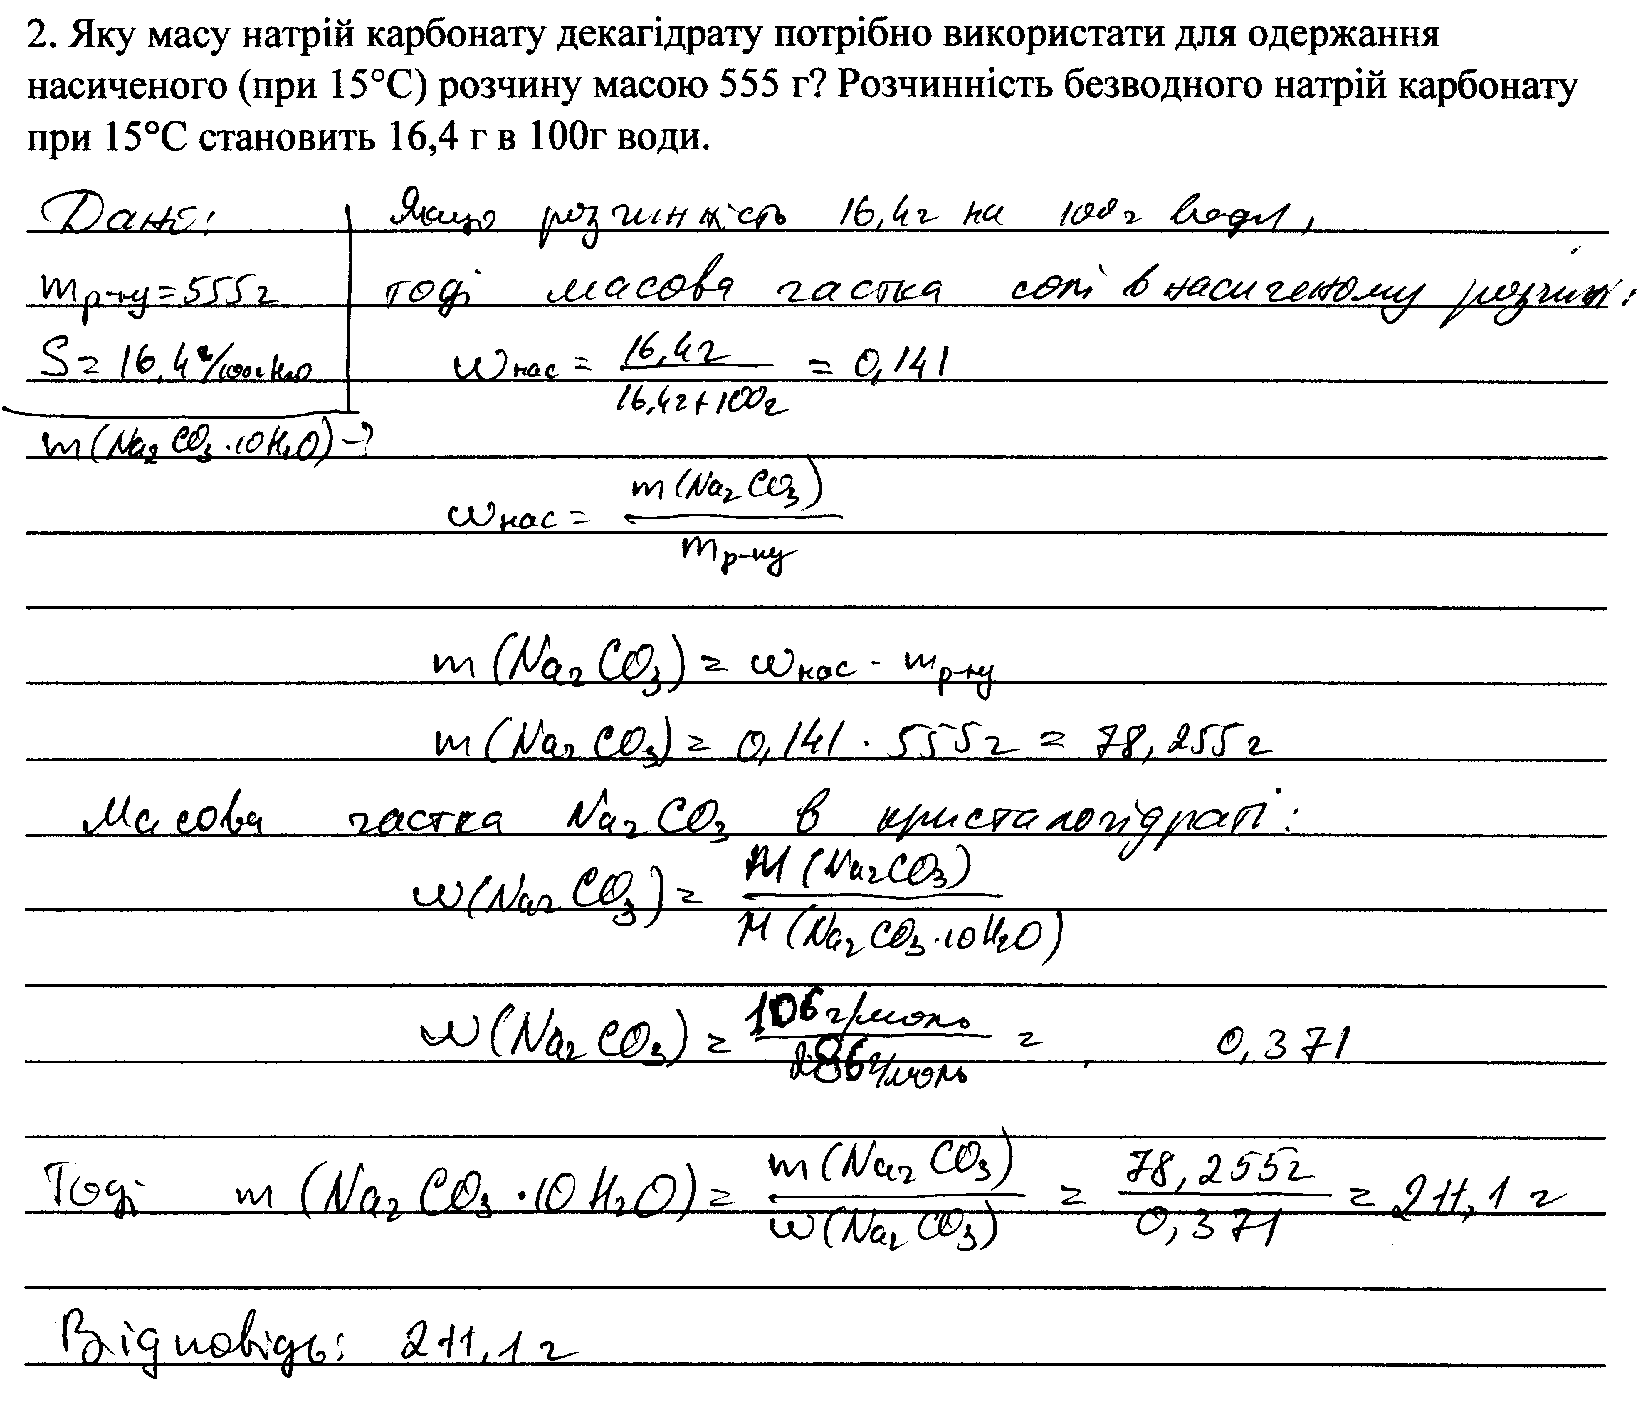 2. Яку масу натрій карбонату декагідрату потрібно використати для одержання
насиченого (при 15°С) розчину масою 555 г? Розчинність безводного натрій карбонату
при 15°С становить 16,4 г в 100г води.
Дано:
m р-ну = 555 г
S = 16,4 г/100г H₂O
m(Na₂CO₃·10H₂O) - ?
Якщо розчинність 16,4 г на 100 г води,
тоді масова частка солі в насиченому розчині:
ω нас = 16,4г / (16,4г + 100г) = 0,141
ω нас = m(Na₂CO₃) / m р-ну
m(Na₂CO₃) = ω нас · m р-ну
m(Na₂CO₃) = 0,141 · 555 г = 78,255 г
Масова частка Na₂CO₃ в кристалогідраті:
ω(Na₂CO₃) = M(Na₂CO₃) / M(Na₂CO₃·10H₂O)
ω(Na₂CO₃) = 106 г/моль / 286 г/моль = 0,371
Тоді m(Na₂CO₃·10H₂O) = m(Na₂CO₃) / ω(Na₂CO₃) = 78,255г / 0,371 = 211,1 г
Відповідь: 211,1 г